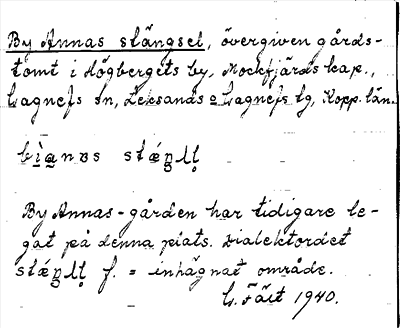 By Annas stängsel, övergiven gårds-
tomt i Högbergets by, Mockfjärds kap.,
Gagnefs sn, Leksands o Gagnefs tg, Kopp. län.
By Annas-gården har tidigare le-
gat på denna plats. Dialektordet
f. = inhägnat område.
G. Täit 1940.